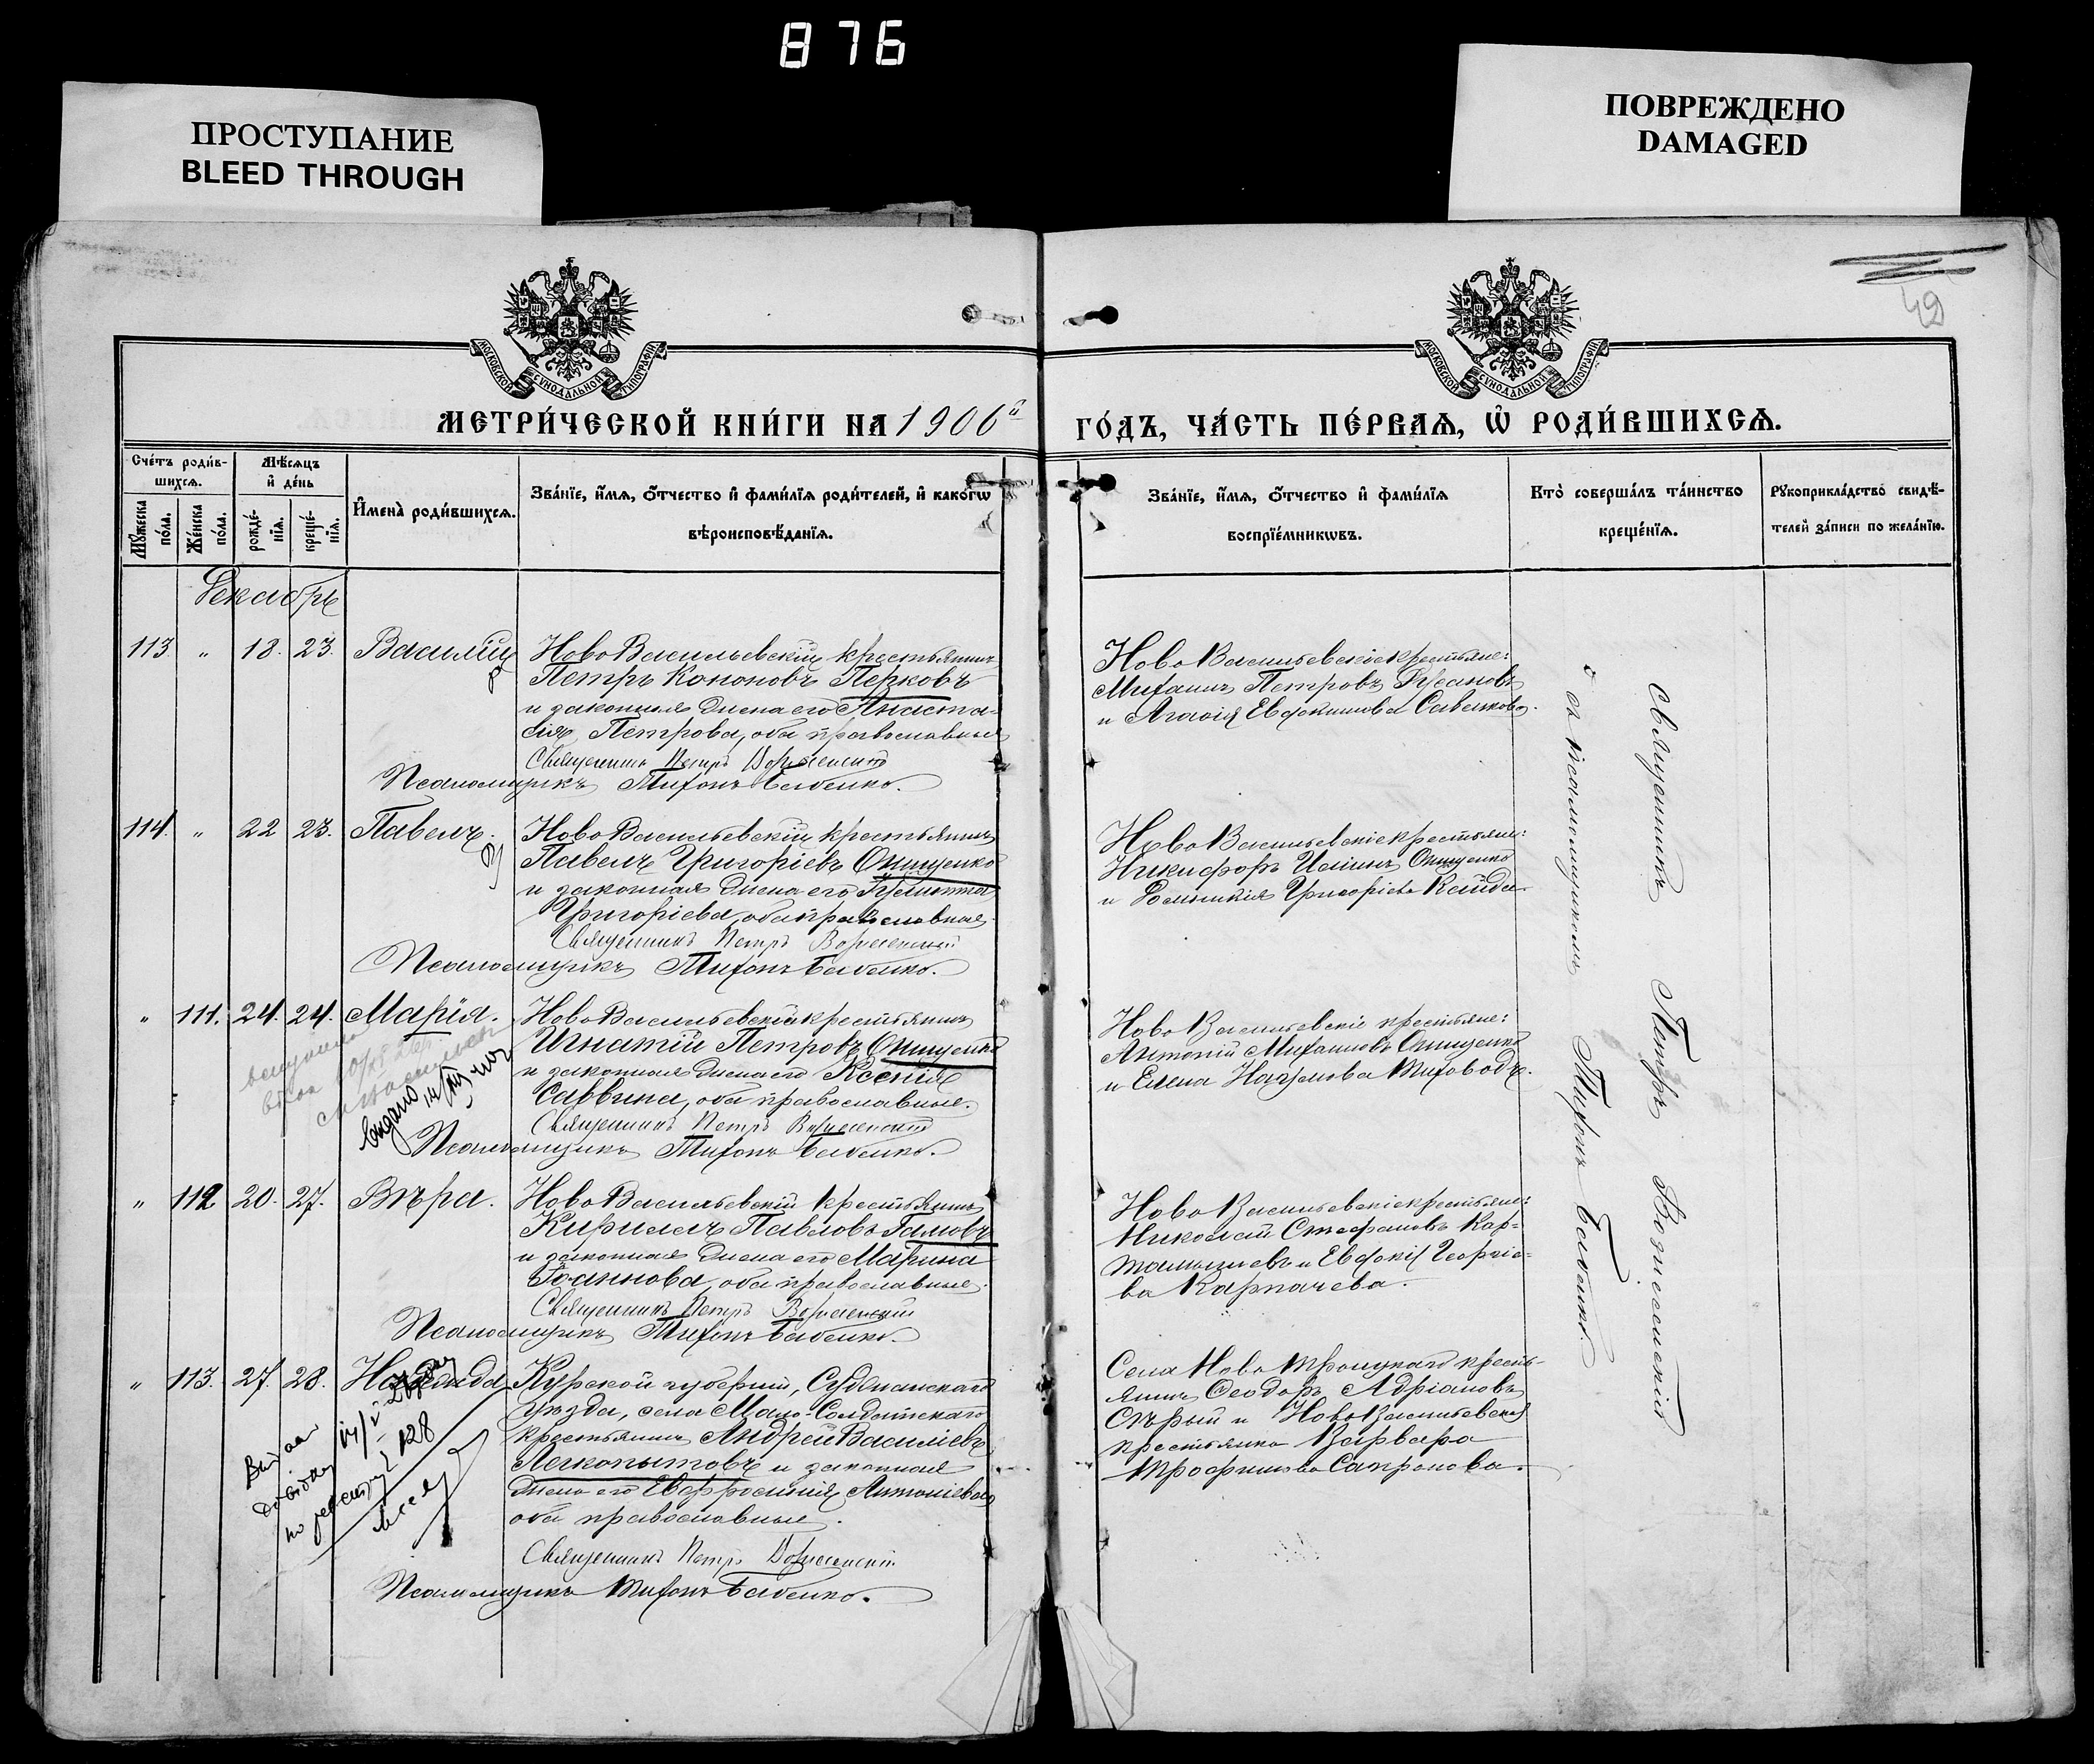 876
ПРОСТУПАНИЕ
BLEED THROUGH
ПОВРЕЖДЕНО
DAMAGED
МОСКОВСКОЙ СУНОДАЛЬНОЙ ТИПОГРАФІИ
МОСКОВСКОЙ СУНОДАЛЬНОЙ ТИПОГРАФІИ
42
МЕТРИ́ЧЕСКОЙ КНИ́ГИ НА 1906й
ГО́ДЪ, ЧА́СТЬ ПЕ́РВАѦ, Ѡ҆ РОДИ́ВШИХСѦ.
Сче́тъ роди́в-
шихсѧ.
Мѣ́сѧцъ
и҆ де́нь
Мꙋ́жеска по́ла.
Же́нска по́ла.
рожде́-
нїѧ.
креще́-
нїѧ.
И҆мена̀ роди́вшихсѧ.
Зва́нїе, и҆́мѧ, ѻ҆́тчество и҆ фами́лїѧ роди́телей, и҆ како́гѡ
вѣроисповѣ́данїѧ.
Зва́нїе, и҆́мѧ, ѻ҆́тчество и҆ фами́лїѧ
воспрїе́мникѡвъ.
Кто̀ соверша́лъ та́инство
креще́нїѧ.
Рꙋкоприкла́дство свидѣ́-
телей за́писи по жела́нїю.
Декабрь
113. " 18. 23. Василій
НовоВасильевскій крестьянинъ
Петръ Кононовъ Перковъ
и законная жена его Анаста-
сія Петрова, оба православные
Священникъ Петръ Вознесенскій
Псаломщикъ Тихонъ Бабенко.
НовоВасильевскіе крестьяне:
Михаилъ Петровъ Русановъ
и Агафія Евфимова Савенкова.
114. " 22 23. Павелъ.
НовоВасильевскій крестьянинъ
Павелъ Григоріевъ Онищенко
и законная жена его
Григоріева, оба православные.
Священникъ Петръ Вознесенскій
Псаломщикъ Тихонъ Бабенко.
НовоВасильевскіе крестьяне:
Никифоръ Онищенко
и Домникія Григоріева Кайда.
" 111. 24. 24. Марія.
НовоВасильевскій крестьянинъ
Игнатій Петровъ Онищенко
и законная жена его Ксенія
Саввина, оба православные.
Священникъ Петръ Вознесенскій
Псаломщикъ Тихонъ Бабенко.
Выдано
НовоВасильевскіе крестьяне:
Антоній Михаиловъ Онищенко
и Елена Наумова
" 112 20. 27. Вѣра.
НовоВасильевскій крестьянинъ
Кириллъ Павловъ Гамовъ
и законная жена его Марина
Іоаннова, оба православные.
Священникъ Петръ Вознесенскій
Псаломщикъ Тихонъ Бабенко.
НовоВасильевскіе крестьяне:
Николай Стефановъ Кар-
и Евдокія Георгіе-
ва Карпачева.
" 113. 27. 28. Надежда
Курской губерніи, Суджанскаго
уѣзда, села Мало-Солдатскаго
крестьянинъ Андрей Василіевъ
Легкопытовъ и законная
жена его Евфросинія Антоніева
оба православные.
Священникъ Петръ Вознесенскій
Псаломщикъ Тихонъ Бабенко.
довідку
128
Села НовоТроицкаго кресть-
янинъ Ѳеодоръ Адріановъ
Сѣрый и НовоВасильевская
крестьянка Варвара
Трофимова Сапронова.
Священникъ Петръ Вознесенскій
съ псаломщикомъ Тихонъ Бабенко.